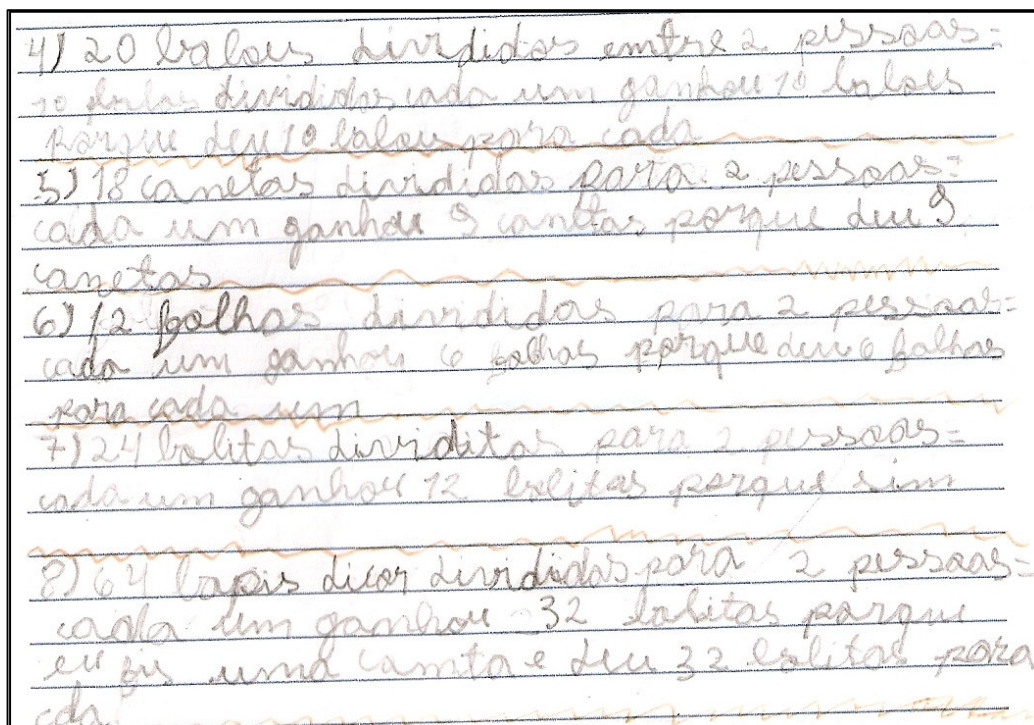 4) 20 baloes divididos emtre 2 pessoas=
10 divididos cada um ganhou 10 baloes
porque deu 10 balou para cada
5) 18 canetas divididas para 2 pessoas=
cada um ganhou 9 canetas porque deu 9
canetas
6) 12 folhas divididas para 2 pessoas=
cada um ganhou 6 folhas porque deu 6 folhas
para cada um
7) 24 bolitas dividitas para 2 pessoas=
cada um ganhou 12 bolitas porque sim
8) 64 lapis dicor divididos para 2 pessoas=
cada um ganhou 32 bolitas porque
eu fis uma camta e deu 32 bolitas para
cda